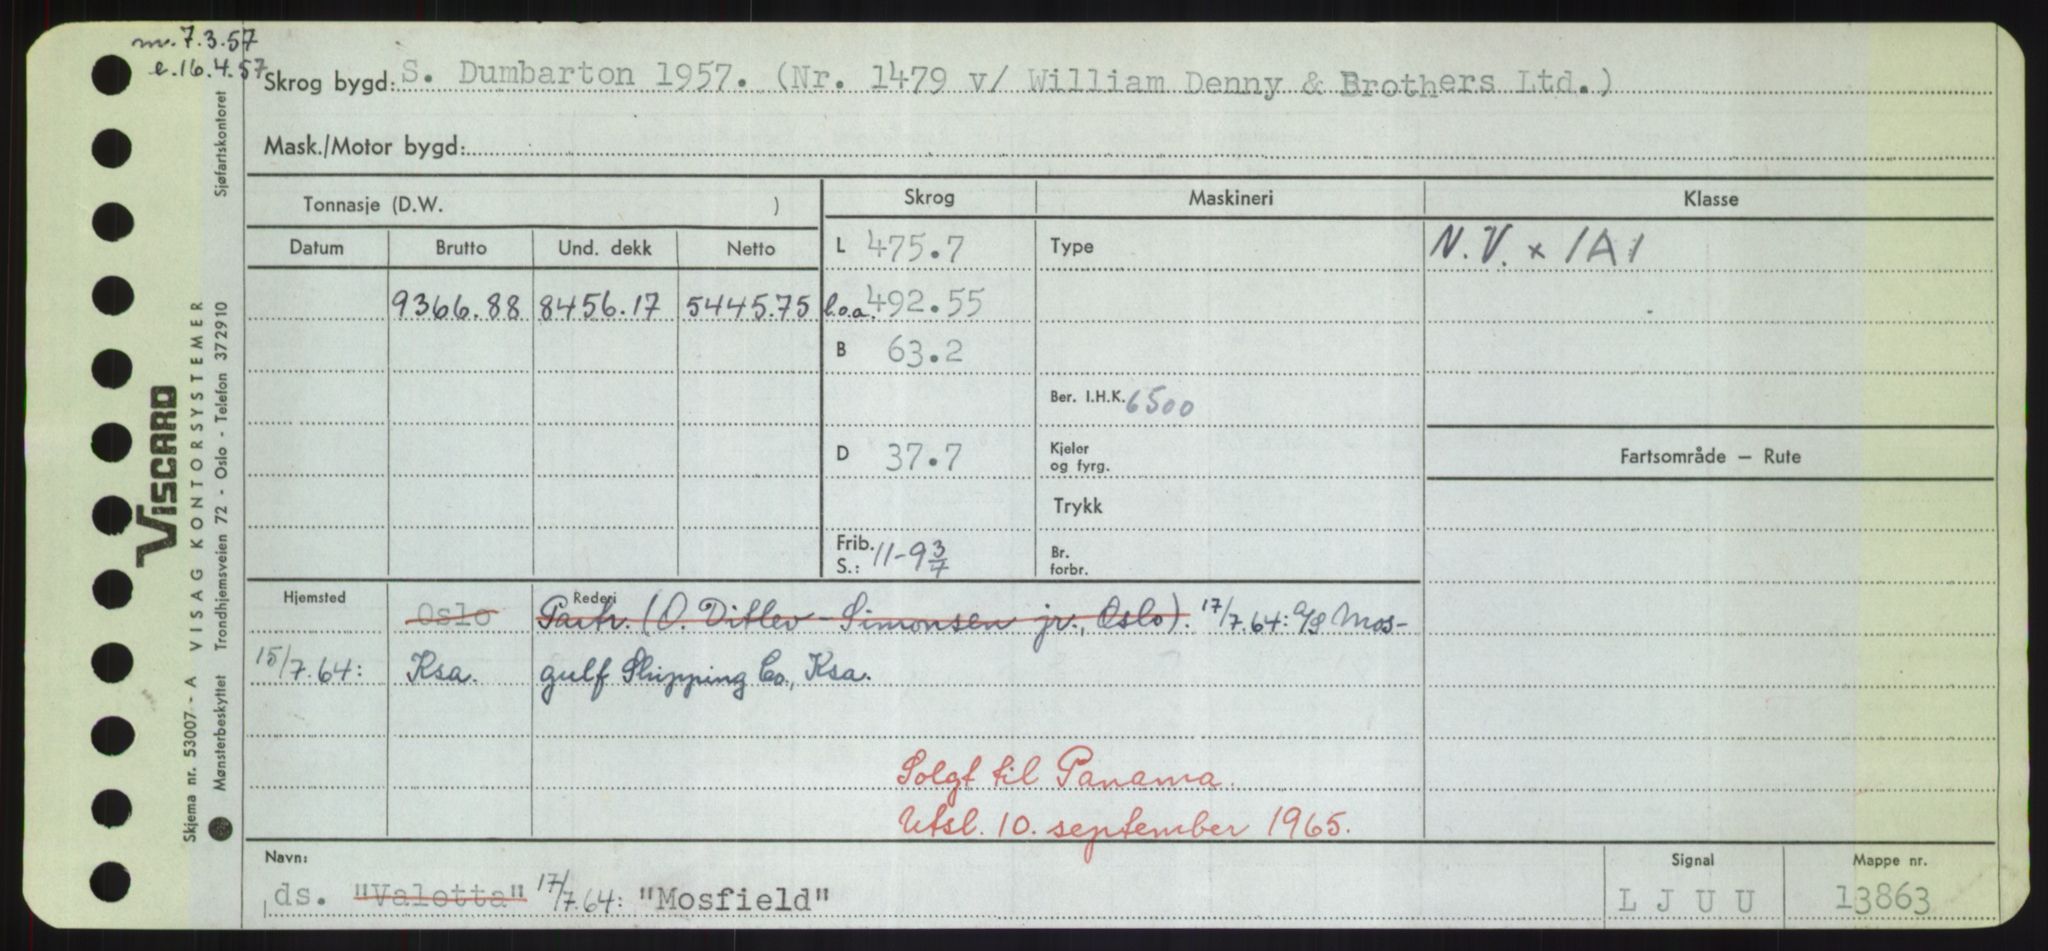 m. 7.3.57
e. 16.4.57
Skrog bygd: S. Dumbarton 1957. (Nr. 1479 v/ William Denny & Brothers Ltd.)
Mask./Motor bygd:
Tonnasje (D.W. ) Skrog Maskineri Klasse
Datum Brutto Und. dekk Netto L 475.7 Type N.V. x 1A1
9366.88 8456.17 5445.75 l.o.a. 492.55
B 63.2
Ber. I.H.K. 6500
D 37.7 Kjeler og fyrg. Fartsområde — Rute
Trykk
Frib. S.: 11-9 3/4 Br. forbr.
Hjemsted Oslo Rederi Partr. (O. Ditlev-Simonsen jr., Oslo). 17/7.64: A/S Mos-
15/7.64: Ksa. gulf Shipping Co., Ksa.
Solgt til Panama.
Utsl. 10. september 1965.
Navn: Signal Mappe nr.
ds. "Valetta" 17/7.64: "Mosfield" L J U U 13863
VISCARD
Skjema nr. 53007 - A VISAG KONTORSYSTEMER
Mønsterbeskyttet Trondhjemsveien 72 - Oslo - Telefon 372910 Sjøfartskontoret